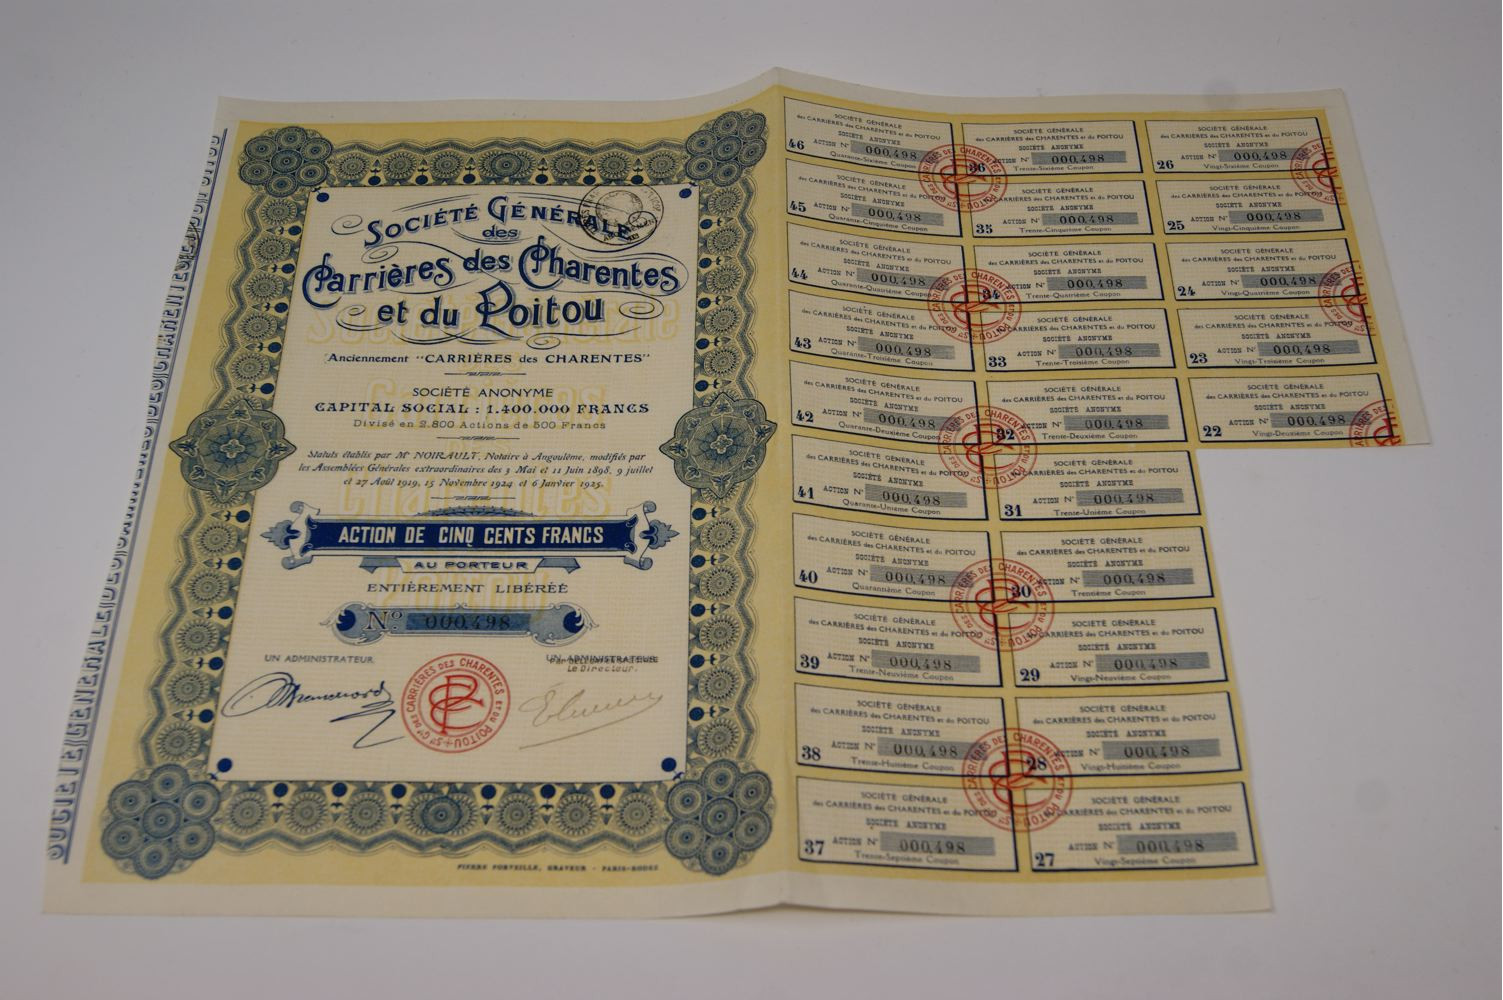 SOCIÉTÉ GÉNÉRALE DES CARRIÈRES DES CHARENTES ET DU POITOU
SOCIÉTÉ GÉNÉRALE
des
Carrières des Charentes
et du Poitou
Anciennement "CARRIÈRES des CHARENTES"
SOCIÉTÉ ANONYME
CAPITAL SOCIAL : 1.400.000 FRANCS
Divisé en 2.800 Actions de 500 Francs
Statuts établis par Mᵉ NOIRAULT, Notaire à Angoulême, modifiés par
les Assemblées Générales extraordinaires des 3 Mai et 11 Juin 1898, 9 juillet
et 27 Août 1919, 15 Novembre 1924 et 6 Janvier 1925.
ACTION DE CINQ CENTS FRANCS
AU PORTEUR
ENTIÈREMENT LIBÉRÉE
Nº 000,498
UN ADMINISTRATEUR
UN ADMINISTRATEUR
Le Directeur.
Sᵗᵉ Gˡᵉ DES CARRIÈRES DES CHARENTES ET DU POITOU
PIERRE FORVEILLE, GRAVEUR - PARIS-RODEZ
SOCIÉTÉ GÉNÉRALE
des CARRIÈRES des CHARENTES et du POITOU
SOCIÉTÉ ANONYME
46 ACTION Nº 000,498
Quarante-Sixième Coupon
SOCIÉTÉ GÉNÉRALE
des CARRIÈRES des CHARENTES et du POITOU
SOCIÉTÉ ANONYME
36 ACTION Nº 000,498
Trente-Sixième Coupon
SOCIÉTÉ GÉNÉRALE
des CARRIÈRES des CHARENTES et du POITOU
SOCIÉTÉ ANONYME
26 ACTION Nº 000,498
Vingt-Sixième Coupon
SOCIÉTÉ GÉNÉRALE
des CARRIÈRES des CHARENTES et du POITOU
SOCIÉTÉ ANONYME
45 ACTION Nº 000,498
Quarante-Cinquième Coupon
SOCIÉTÉ GÉNÉRALE
des CARRIÈRES des CHARENTES et du POITOU
SOCIÉTÉ ANONYME
35 ACTION Nº 000,498
Trente-Cinquième Coupon
SOCIÉTÉ GÉNÉRALE
des CARRIÈRES des CHARENTES et du POITOU
SOCIÉTÉ ANONYME
25 ACTION Nº 000,498
Vingt-Cinquième Coupon
SOCIÉTÉ GÉNÉRALE
des CARRIÈRES des CHARENTES et du POITOU
SOCIÉTÉ ANONYME
44 ACTION Nº 000,498
Quarante-Quatrième Coupon
SOCIÉTÉ GÉNÉRALE
des CARRIÈRES des CHARENTES et du POITOU
SOCIÉTÉ ANONYME
34 ACTION Nº 000,498
Trente-Quatrième Coupon
SOCIÉTÉ GÉNÉRALE
des CARRIÈRES des CHARENTES et du POITOU
SOCIÉTÉ ANONYME
24 ACTION Nº 000,498
Vingt-Quatrième Coupon
SOCIÉTÉ GÉNÉRALE
des CARRIÈRES des CHARENTES et du POITOU
SOCIÉTÉ ANONYME
43 ACTION Nº 000,498
Quarante-Troisième Coupon
SOCIÉTÉ GÉNÉRALE
des CARRIÈRES des CHARENTES et du POITOU
SOCIÉTÉ ANONYME
33 ACTION Nº 000,498
Trente-Troisième Coupon
SOCIÉTÉ GÉNÉRALE
des CARRIÈRES des CHARENTES et du POITOU
SOCIÉTÉ ANONYME
23 ACTION Nº 000,498
Vingt-Troisième Coupon
SOCIÉTÉ GÉNÉRALE
des CARRIÈRES des CHARENTES et du POITOU
SOCIÉTÉ ANONYME
42 ACTION Nº 000,498
Quarante-Deuxième Coupon
SOCIÉTÉ GÉNÉRALE
des CARRIÈRES des CHARENTES et du POITOU
SOCIÉTÉ ANONYME
32 ACTION Nº 000,498
Trente-Deuxième Coupon
SOCIÉTÉ GÉNÉRALE
des CARRIÈRES des CHARENTES et du POITOU
SOCIÉTÉ ANONYME
22 ACTION Nº 000,498
Vingt-Deuxième Coupon
SOCIÉTÉ GÉNÉRALE
des CARRIÈRES des CHARENTES et du POITOU
SOCIÉTÉ ANONYME
41 ACTION Nº 000,498
Quarante-Unième Coupon
SOCIÉTÉ GÉNÉRALE
des CARRIÈRES des CHARENTES et du POITOU
SOCIÉTÉ ANONYME
31 ACTION Nº 000,498
Trente-Unième Coupon
SOCIÉTÉ GÉNÉRALE
des CARRIÈRES des CHARENTES et du POITOU
SOCIÉTÉ ANONYME
40 ACTION Nº 000,498
Quarantième Coupon
SOCIÉTÉ GÉNÉRALE
des CARRIÈRES des CHARENTES et du POITOU
SOCIÉTÉ ANONYME
30 ACTION Nº 000,498
Trentième Coupon
SOCIÉTÉ GÉNÉRALE
des CARRIÈRES des CHARENTES et du POITOU
SOCIÉTÉ ANONYME
39 ACTION Nº 000,498
Trente-Neuvième Coupon
SOCIÉTÉ GÉNÉRALE
des CARRIÈRES des CHARENTES et du POITOU
SOCIÉTÉ ANONYME
29 ACTION Nº 000,498
Vingt-Neuvième Coupon
SOCIÉTÉ GÉNÉRALE
des CARRIÈRES des CHARENTES et du POITOU
SOCIÉTÉ ANONYME
38 ACTION Nº 000,498
Trente-Huitième Coupon
SOCIÉTÉ GÉNÉRALE
des CARRIÈRES des CHARENTES et du POITOU
SOCIÉTÉ ANONYME
28 ACTION Nº 000,498
Vingt-Huitième Coupon
SOCIÉTÉ GÉNÉRALE
des CARRIÈRES des CHARENTES et du POITOU
SOCIÉTÉ ANONYME
37 ACTION Nº 000,498
Trente-Septième Coupon
SOCIÉTÉ GÉNÉRALE
des CARRIÈRES des CHARENTES et du POITOU
SOCIÉTÉ ANONYME
27 ACTION Nº 000,498
Vingt-Septième Coupon